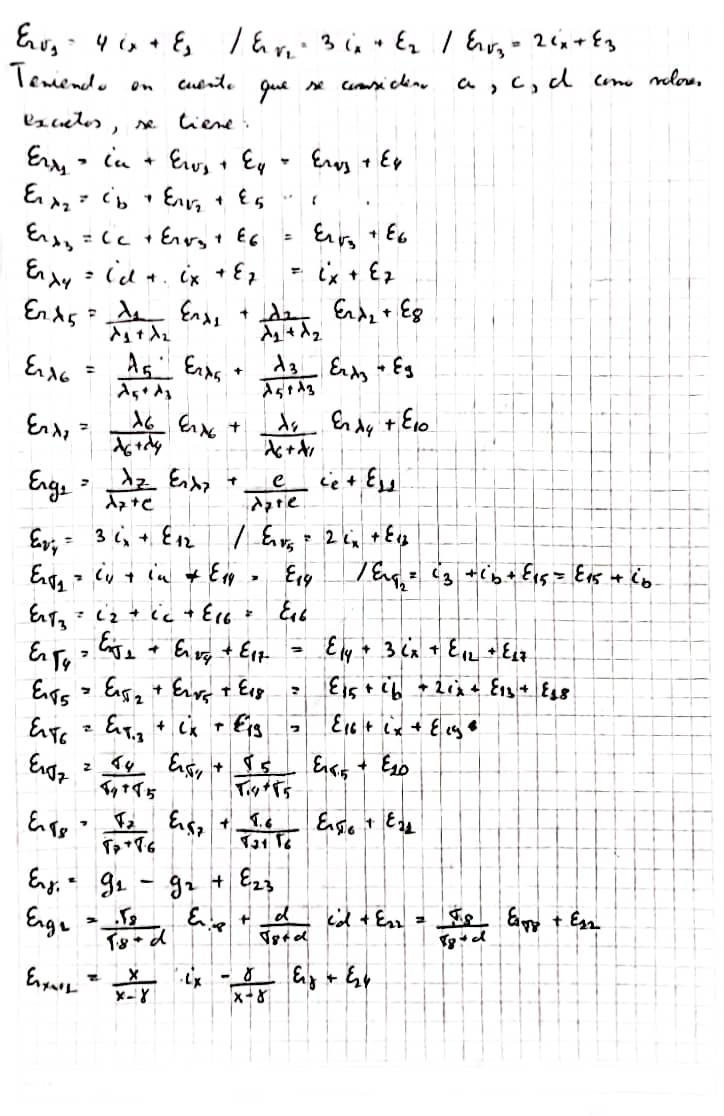 Erv₁ = 4 ix + ε₁ / Erv₂ = 3 ix + ε₂ / Erv₃ = 2ix + ε₃
Teniendo en cuenta que se considera a, c, d como valores
exactos, se tiene:
Erλ₁ = ia + Erv₁ + ε₄ = Erv₁ + ε₄
Erλ₂ = ib + Erv₂ + ε₅
Erλ₃ = ic + Erv₃ + ε₆ = Erv₃ + ε₆
Erλ₄ = id + ix + ε₇ = ix + ε₇
Erλ₅ = λ₁/(λ₁+λ₂) Erλ₁ + λ₂/(λ₁+λ₂) Erλ₂ + ε₈
Erλ₆ = λ₅/(λ₅+λ₃) Erλ₅ + λ₃/(λ₅+λ₃) Erλ₃ + ε₉
Erλ₇ = λ₆/(λ₆+λ₄) Erλ₆ + λ₄/(λ₆+λ₄) Erλ₄ + ε₁₀
Erg₁ = λ₇/(λ₇+e) Erλ₇ + e/(λ₇+e) ie + ε₁₁
Erv₄ = 3 ix + ε₁₂ / Erv₅ = 2 ix + ε₁₃
Erσ₁ = i₄ + ia + ε₁₄ = ε₁₄ / Erσ₂ = i₃ + ib + ε₁₅ = ε₁₅ + ib
Erσ₃ = i₂ + ic + ε₁₆ = ε₁₆
Erσ₄ = Erσ₁ + Erv₄ + ε₁₇ = ε₁₄ + 3ix + ε₁₂ + ε₁₇
Erσ₅ = Erσ₂ + Erv₅ + ε₁₈ = ε₁₅ + ib + 2ix + ε₁₃ + ε₁₈
Erσ₆ = Erσ₃ + ix + ε₁₉ = ε₁₆ + ix + ε₁₉
Erσ₇ = σ₄/(σ₄+σ₅) Erσ₄ + σ₅/(σ₄+σ₅) Erσ₅ + ε₂₀
Erσ₈ = σ₇/(σ₇+σ₆) Erσ₇ + σ₆/(σ₇+σ₆) Erσ₆ + ε₂₁
Erγ = g₁ - g₂ + ε₂₃
Erg₂ = σ₈/(σ₈+d) Erσ₈ + d/(σ₈+d) id + ε₂₂ = σ₈/(σ₈+d) Erσ₈ + ε₂₂
Erxₙ₊₁ = x/(x-γ) ix - γ/(x-γ) Erγ + ε₂₄